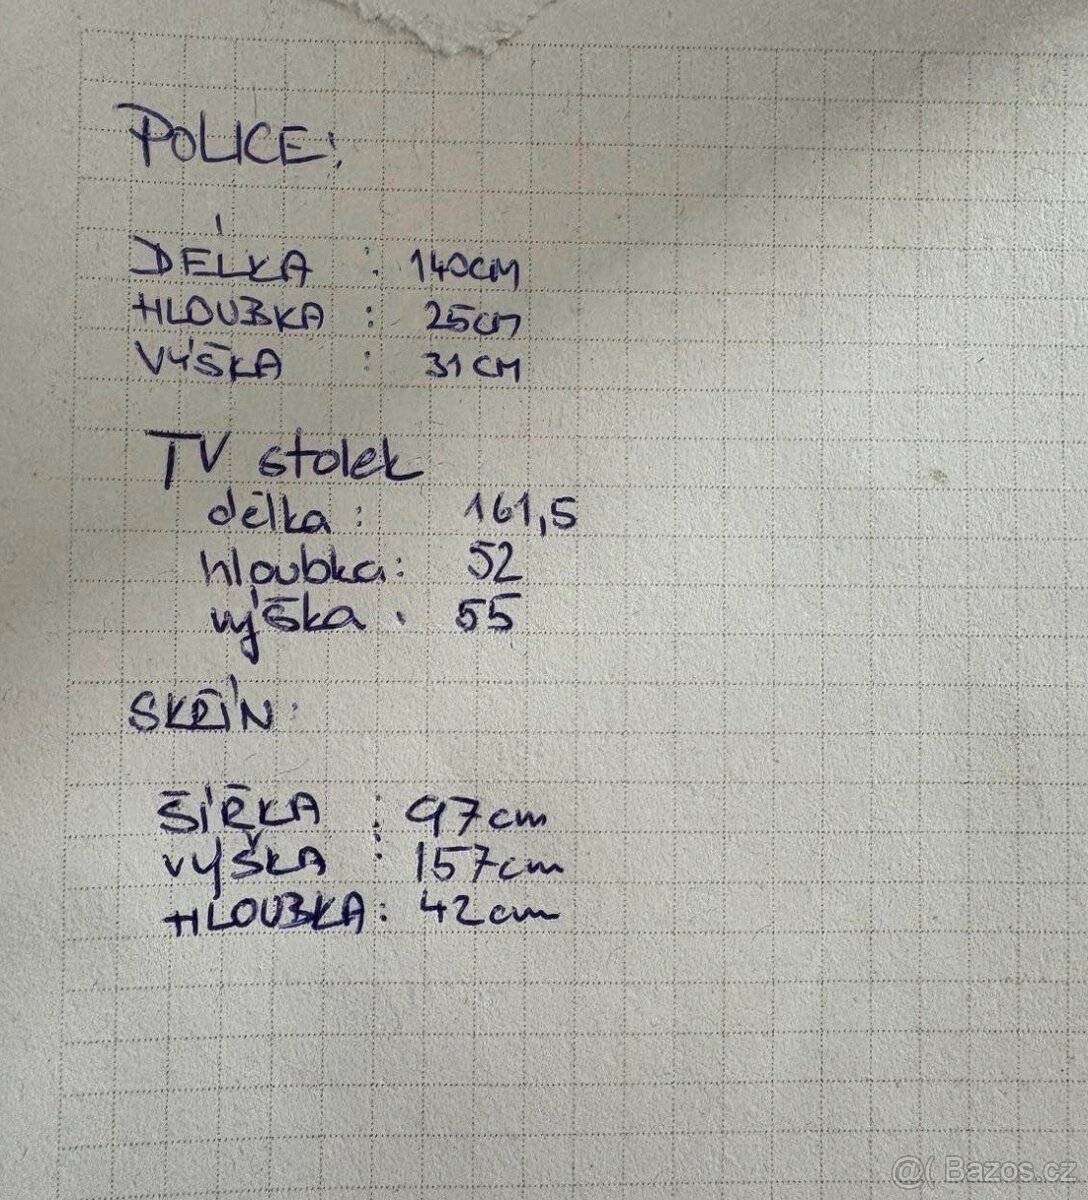 POLICE:
DÉLKA : 140CM
HLOUBKA : 25CM
VÝŠKA : 31CM
TV stolek
délka : 161,5
hloubka: 52
výška : 55
SKŘÍŇ:
ŠÍŘKA : 97cm
VYŠKA : 157cm
HLOUBKA: 42cm
@( Bazos.cz